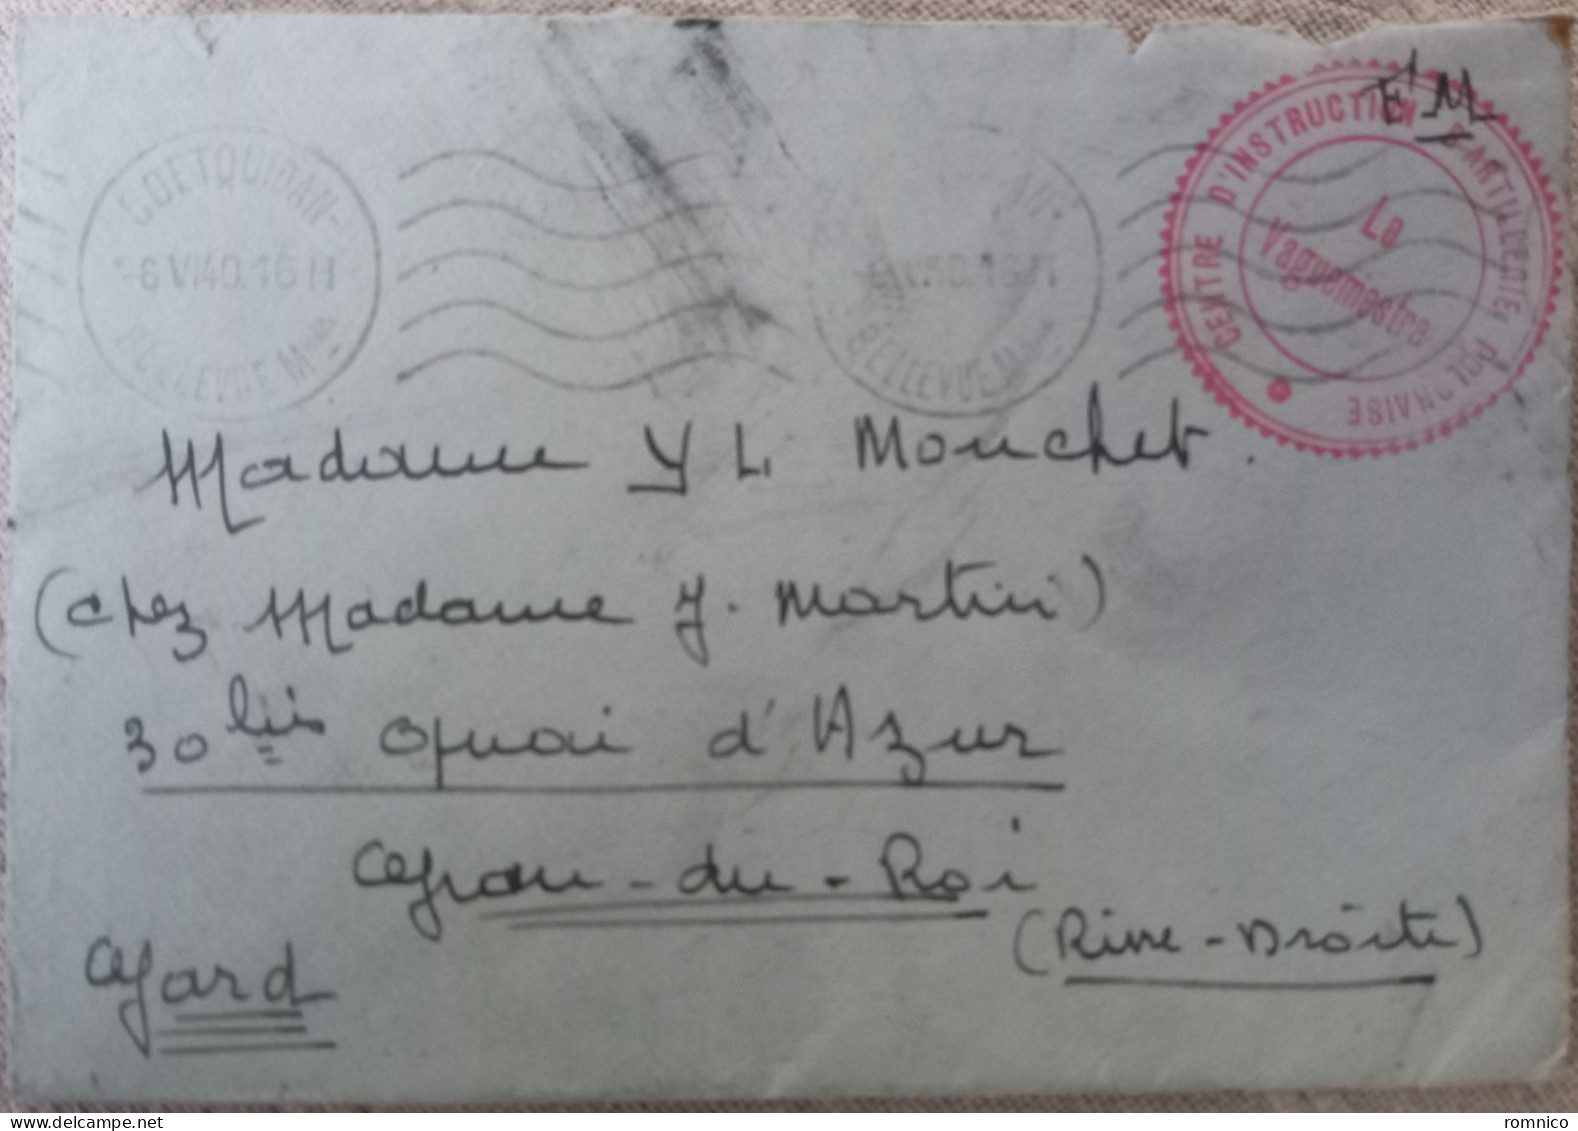 F M
CENTRE D'INSTRUCTION D'ARTILLERIE POLONAISE
Le
Vaguemestre
COETQUIDAN-
-6 VI 40.16 H
BELLEVUE Mbihan
40.16 H
BELLEVUE Mbihan
Madame Y L. Mouchet.
(chez Madame J. Martin)
30 bis Quai d'Azur
Grau-du-Roi
(Rive-Droite)
Gard
delcampe.net
romnico